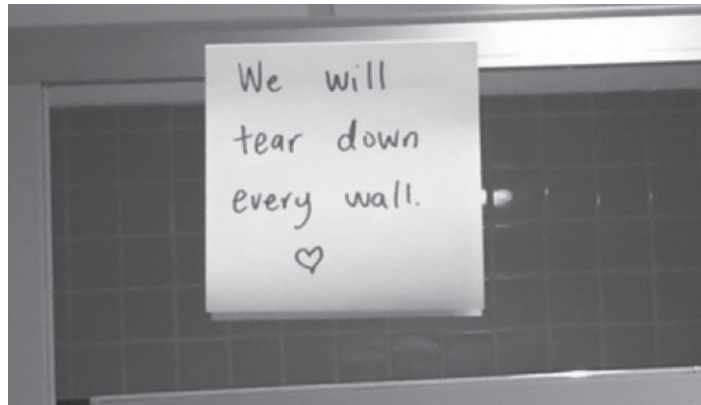 We will
tear down
every wall.
♡